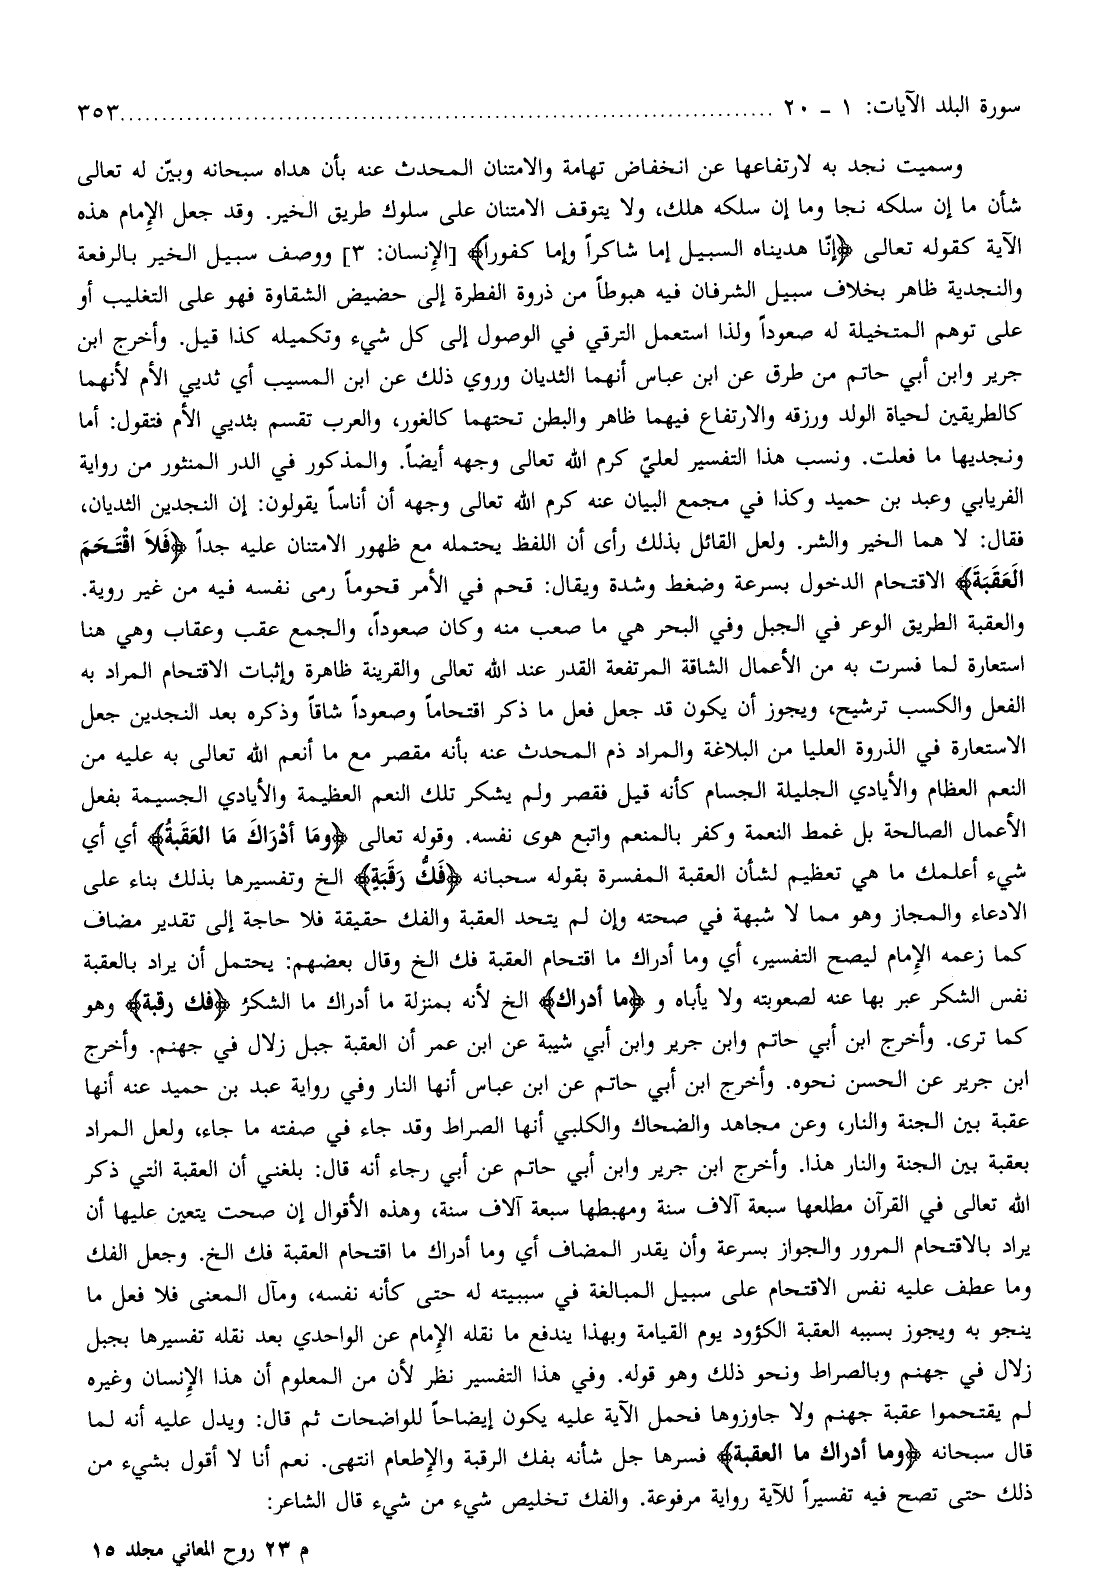 سورة البلد الآيات: ١ ـ ٢٠ ........................................................................ ٣٥٣
وسميت نجد به لارتفاعها عن انخفاض تهامة والامتنان المحدث عنه بأن هداه سبحانه وبيّن له تعالى
شأن ما إن سلكه نجا وما إن سلكه هلك، ولا يتوقف الامتنان على سلوك طريق الخير. وقد جعل الإمام هذه
الآية كقوله تعالى ﴿إنّا هديناه السبيل إما شاكراً وإما كفوراً﴾ [الإنسان: ٣] ووصف سبيل الخير بالرفعة
والنجدية ظاهر بخلاف سبيل الشرفان فيه هبوطاً من ذروة الفطرة إلى حضيض الشقاوة فهو على التغليب أو
على توهم المتخيلة له صعوداً ولذا استعمل الترقي في الوصول إلى كل شيء وتكميله كذا قيل. وأخرج ابن
جرير وابن أبي حاتم من طرق عن ابن عباس أنهما الثديان وروي ذلك عن ابن المسيب أي ثديي الأم لأنهما
كالطريقين لحياة الولد ورزقه والارتفاع فيهما ظاهر والبطن تحتهما كالغور، والعرب تقسم بثديي الأم فتقول: أما
ونجديها ما فعلت. ونسب هذا التفسير لعليّ كرم الله تعالى وجهه أيضاً. والمذكور في الدر المنثور من رواية
الفريابي وعبد بن حميد وكذا في مجمع البيان عنه كرم الله تعالى وجهه أن أناساً يقولون: إن النجدين الثديان،
فقال: لا هما الخير والشر. ولعل القائل بذلك رأى أن اللفظ يحتمله مع ظهور الامتنان عليه جداً ﴿فَلاَ اقْتَحَمَ
الَعَقَبَةَ﴾ الاقتحام الدخول بسرعة وضغط وشدة ويقال: قحم في الأمر قحوماً رمى نفسه فيه من غير روية.
والعقبة الطريق الوعر في الجبل وفي البحر هي ما صعب منه وكان صعوداً، والجمع عقب وعقاب وهي هنا
استعارة لما فسرت به من الأعمال الشاقة المرتفعة القدر عند الله تعالى والقرينة ظاهرة وإثبات الاقتحام المراد به
الفعل والكسب ترشيح، ويجوز أن يكون قد جعل فعل ما ذكر اقتحاماً وصعوداً شاقاً وذكره بعد النجدين جعل
الاستعارة في الذروة العليا من البلاغة والمراد ذم المحدث عنه بأنه مقصر مع ما أنعم الله تعالى به عليه من
النعم العظام والأيادي الجليلة الجسام كأنه قيل فقصر ولم يشكر تلك النعم العظيمة والأيادي الجسيمة بفعل
الأعمال الصالحة بل غمط النعمة وكفر بالمنعم واتبع هوى نفسه. وقوله تعالى ﴿ومَا أدْرَاكَ مَا العَقَبةُ﴾ أي أي
شيء أعلمك ما هي تعظيم لشأن العقبة المفسرة بقوله سحبانه ﴿فَكُّ رَقَبَةٍ﴾ الخ وتفسيرها بذلك بناء على
الادعاء والمجاز وهو مما لا شبهة في صحته وإن لم يتحد العقبة والفك حقيقة فلا حاجة إلى تقدير مضاف
كما زعمه الإمام ليصح التفسير، أي وما أدراك ما اقتحام العقبة فك الخ وقال بعضهم: يحتمل أن يراد بالعقبة
نفس الشكر عبر بها عنه لصعوبته ولا يأباه و ﴿ما أدراك﴾ الخ لأنه بمنزلة ما أدراك ما الشكرُ ﴿فك رقبة﴾ وهو
كما ترى. وأخرج ابن أبي حاتم وابن جرير وابن أبي شيبة عن ابن عمر أن العقبة جبل زلال في جهنم. وأخرج
ابن جرير عن الحسن نحوه. وأخرج ابن أبي حاتم عن ابن عباس أنها النار وفي رواية عبد بن حميد عنه أنها
عقبة بين الجنة والنار، وعن مجاهد والضحاك والكلبي أنها الصراط وقد جاء في صفته ما جاء، ولعل المراد
بعقبة بين الجنة والنار هذا. وأخرج ابن جرير وابن أبي حاتم عن أبي رجاء أنه قال: بلغني أن العقبة التي ذكر
الله تعالى في القرآن مطلعها سبعة آلاف سنة ومهبطها سبعة آلاف سنة، وهذه الأقوال إن صحت يتعين عليها أن
يراد بالاقتحام المرور والجواز بسرعة وأن يقدر المضاف أي وما أدراك ما اقتحام العقبة فك الخ. وجعل الفك
وما عطف عليه نفس الاقتحام على سبيل المبالغة في سببيته له حتى كأنه نفسه، ومآل المعنى فلا فعل ما
ينجو به ويجوز بسببه العقبة الكؤود يوم القيامة وبهذا يندفع ما نقله الإمام عن الواحدي بعد نقله تفسيرها بجبل
زلال في جهنم وبالصراط ونحو ذلك وهو قوله. وفي هذا التفسير نظر لأن من المعلوم أن هذا الإنسان وغيره
لم يقتحموا عقبة جهنم ولا جاوزوها فحمل الآية عليه يكون إيضاحاً للواضحات ثم قال: ويدل عليه أنه لما
قال سبحانه ﴿وما أدراك ما العقبة﴾ فسرها جل شأنه بفك الرقبة والإطعام انتهى. نعم أنا لا أقول بشيء من
ذلك حتى تصح فيه تفسيراً للآية رواية مرفوعة. والفك تخليص شيء من شيء قال الشاعر:
م ٢٣ روح المعاني مجلد ١٥